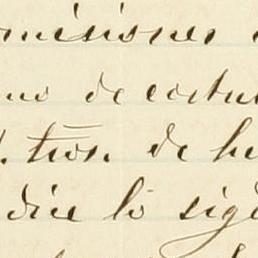 misiones
no de costu
tros. de he
dice lo sig